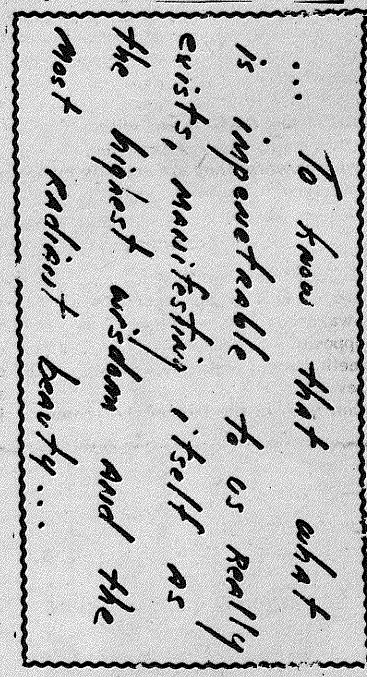 ... To know that what
is impenetrable to us really
exists, manifesting itself as
the highest wisdom and the
most radiant beauty...